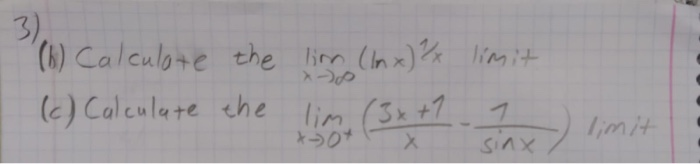 3)
(b) Calculate the lim x→∞ (ln x)^1/x limit
(c) Calculate the lim x→0+ (3x+1/x - 1/sinx) limit